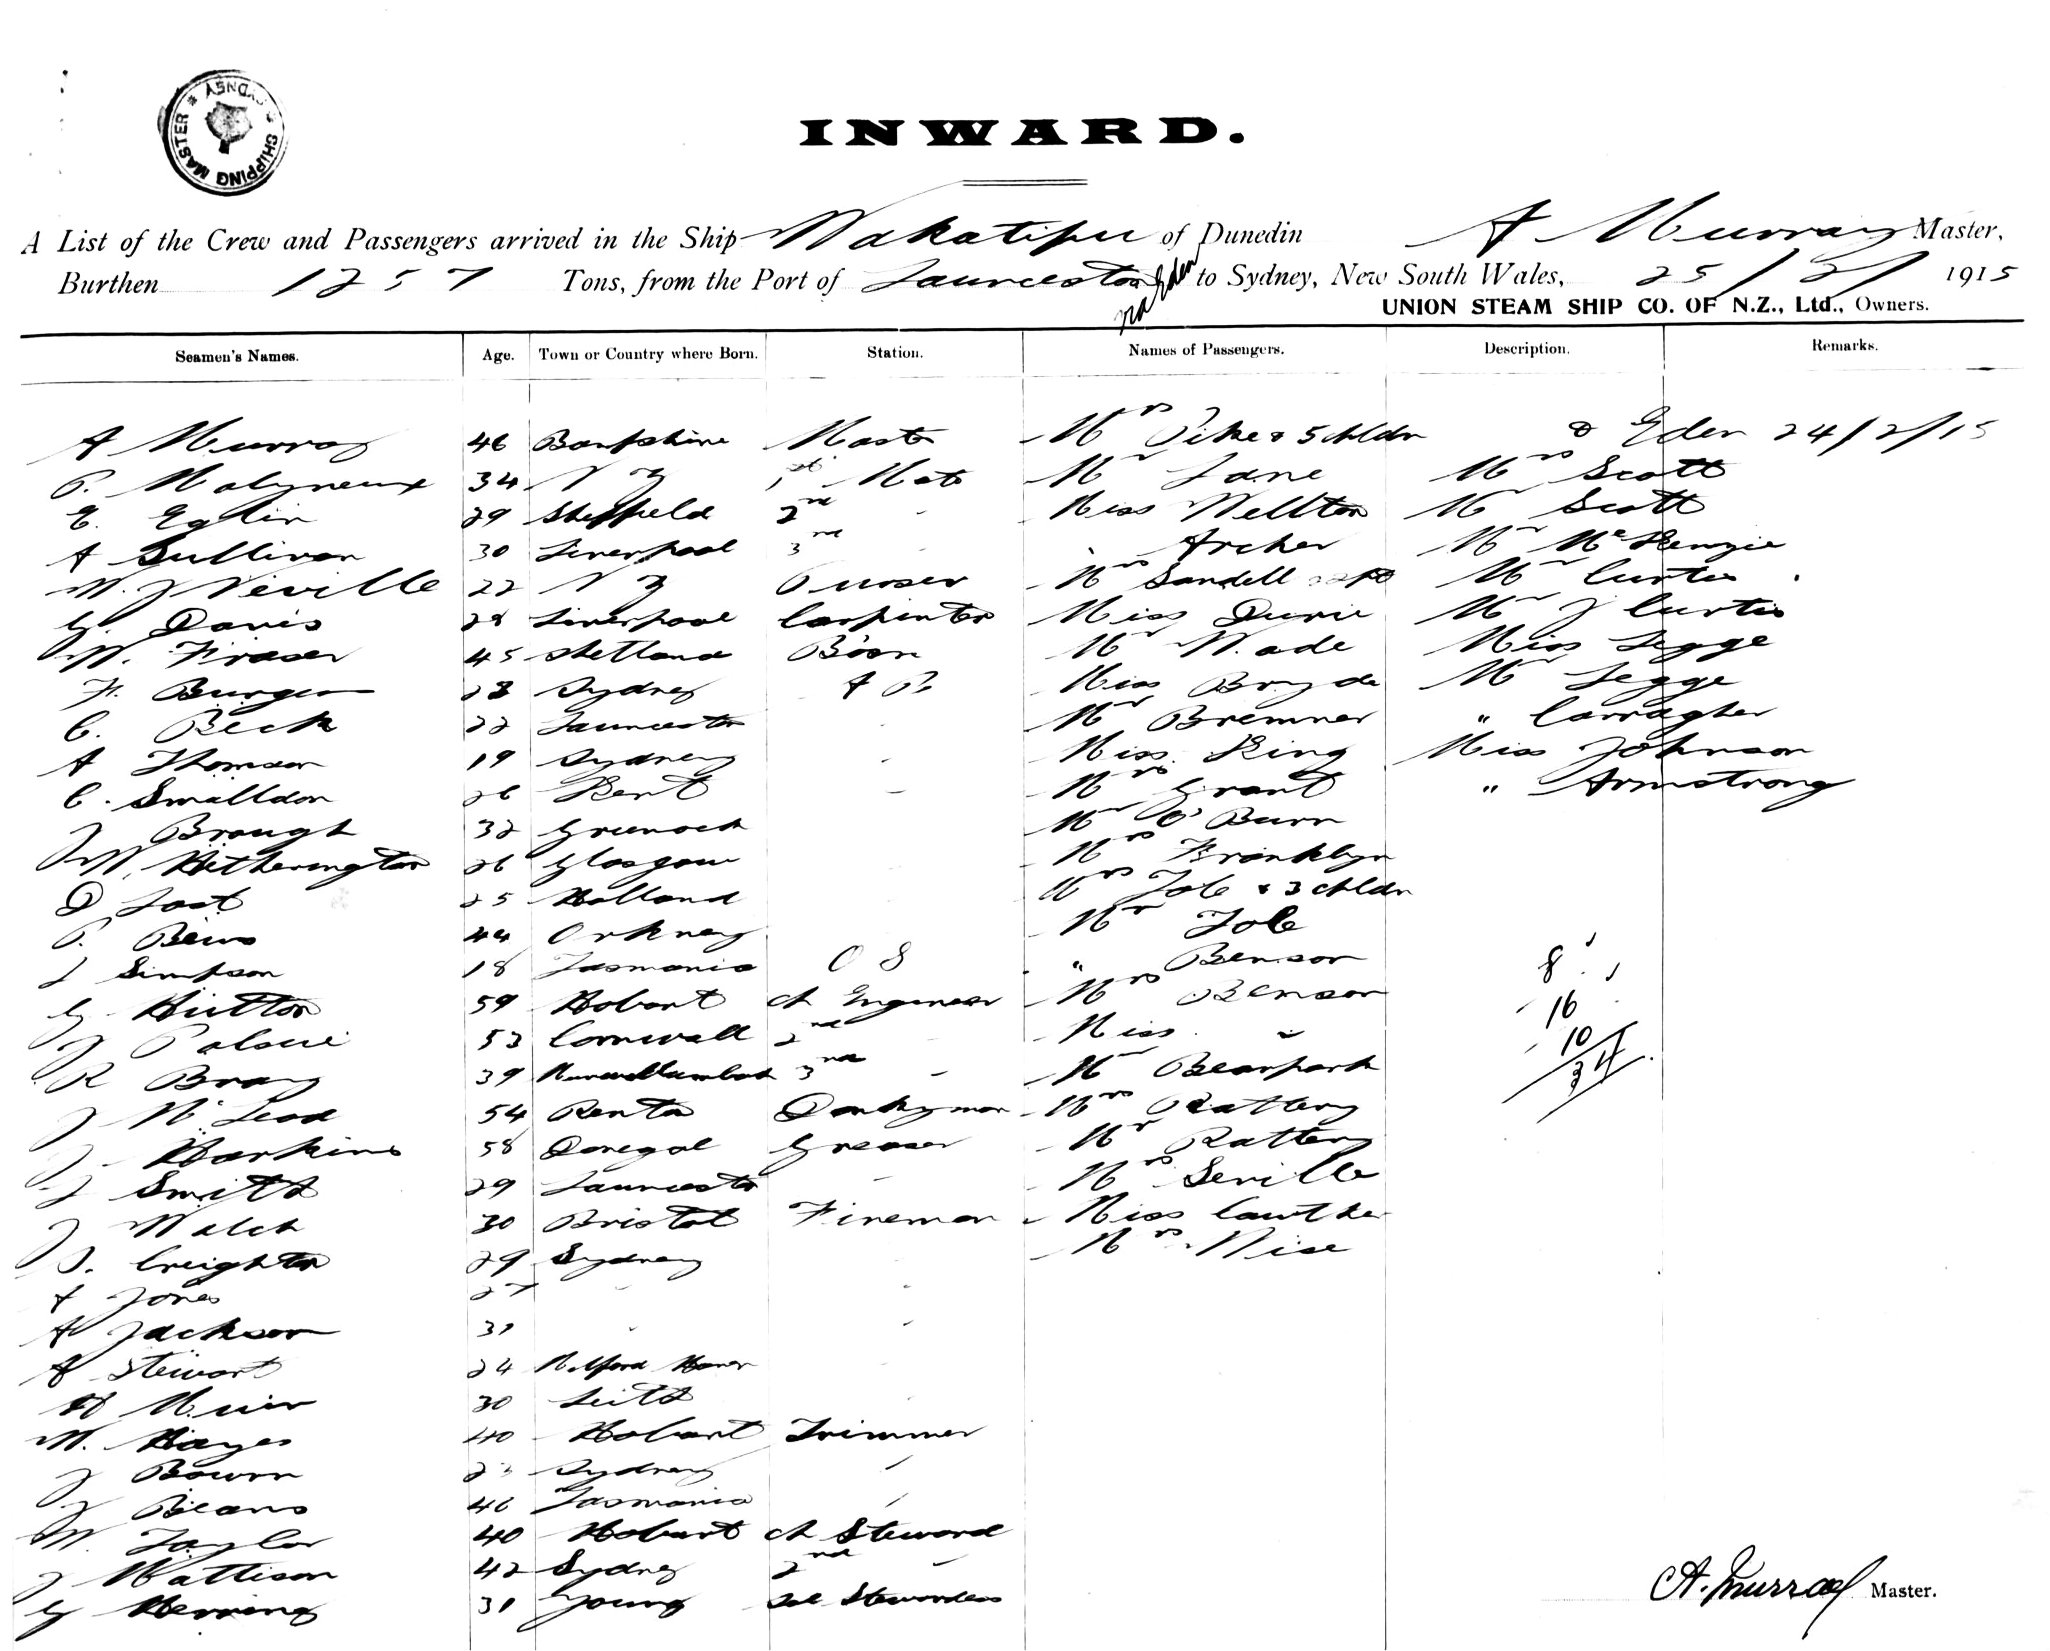 SHIPPING MASTER * SYDNEY *
INWARD.
A List of the Crew and Passengers arrived in the Ship Wakatipu of Dunedin A Murray Master,
Burthen 1257 Tons, from the Port of Launceston via Eden to Sydney, New South Wales, 25/2/ 1915
UNION STEAM SHIP CO. OF N.Z., Ltd., Owners.
Seamen's Names. Age. Town or Country where Born. Station. Names of Passengers. Description. Remarks.
A Murray 46 Banfshire Master Mrs Pike & 5 chldn Eden 24/2/15
P. Molyneux 34 N Z 1st Mate Mr Lane Mrs Scott
E. Eglin 29 Sheffield 2nd " Miss Wellton Mr Scott
A Sullivan 30 Liverpool 3rd " " Archer Mr McKenzie
W. J Neville 22 N Z Purser Mrs Sandell Mr Curtis
G. Davis 28 Liverpool Carpenter Miss Durie Mr J Curtis
W. Fraser 45 Shetland Bosn Mr Wade Miss Legge
F. Burgess 23 Sydney A B Miss Bryde Mr Legge
C. Beck 22 Launceston " Mr Bremner " Carragher
A Thomson 19 Sydney " Miss King Miss Johnson
C. Smalldon 26 Kent " Mrs Grant " Armstrong
J Brough 32 Greenock Mr O'Burn
W. Hetherington 26 Glasgow Mrs Franklyn
D Last 25 Holland Mrs Tole & 3 chldn
P. Bews 44 Orkney Mr Tole
J Simpson 18 Tasmania O S " Benson 8
G. Hutton 59 Hobart Ch Engineer Mrs Benson 16
J 53 Cornwall 2nd " Miss " 10
R Bray 39 3rd " Mr Bearpark 34
J McLeod 54 Donkeyman Mrs Rattery
J. Harkins 58 Donegal Greaser Mr Rattery
J Smith 29 Launceston " Mrs Seville
J Walch 30 Bristol Fireman Miss Cawther
J. Creighton 29 Sydney " Mrs Wise
A Jones 27 " "
A Jackson 31 " "
A Stewart 24 Milford Haven "
A Muir 30 Leith "
M. Hayes 40 Hobart Trimmer
J Bown 23 Sydney "
J Beans 46 Tasmania "
W. Taylor 40 Hobart Ch Steward
J Mattison 42 Sydney 2nd "
G Herring 31 Young Sal Stewardess
A. Murray Master.